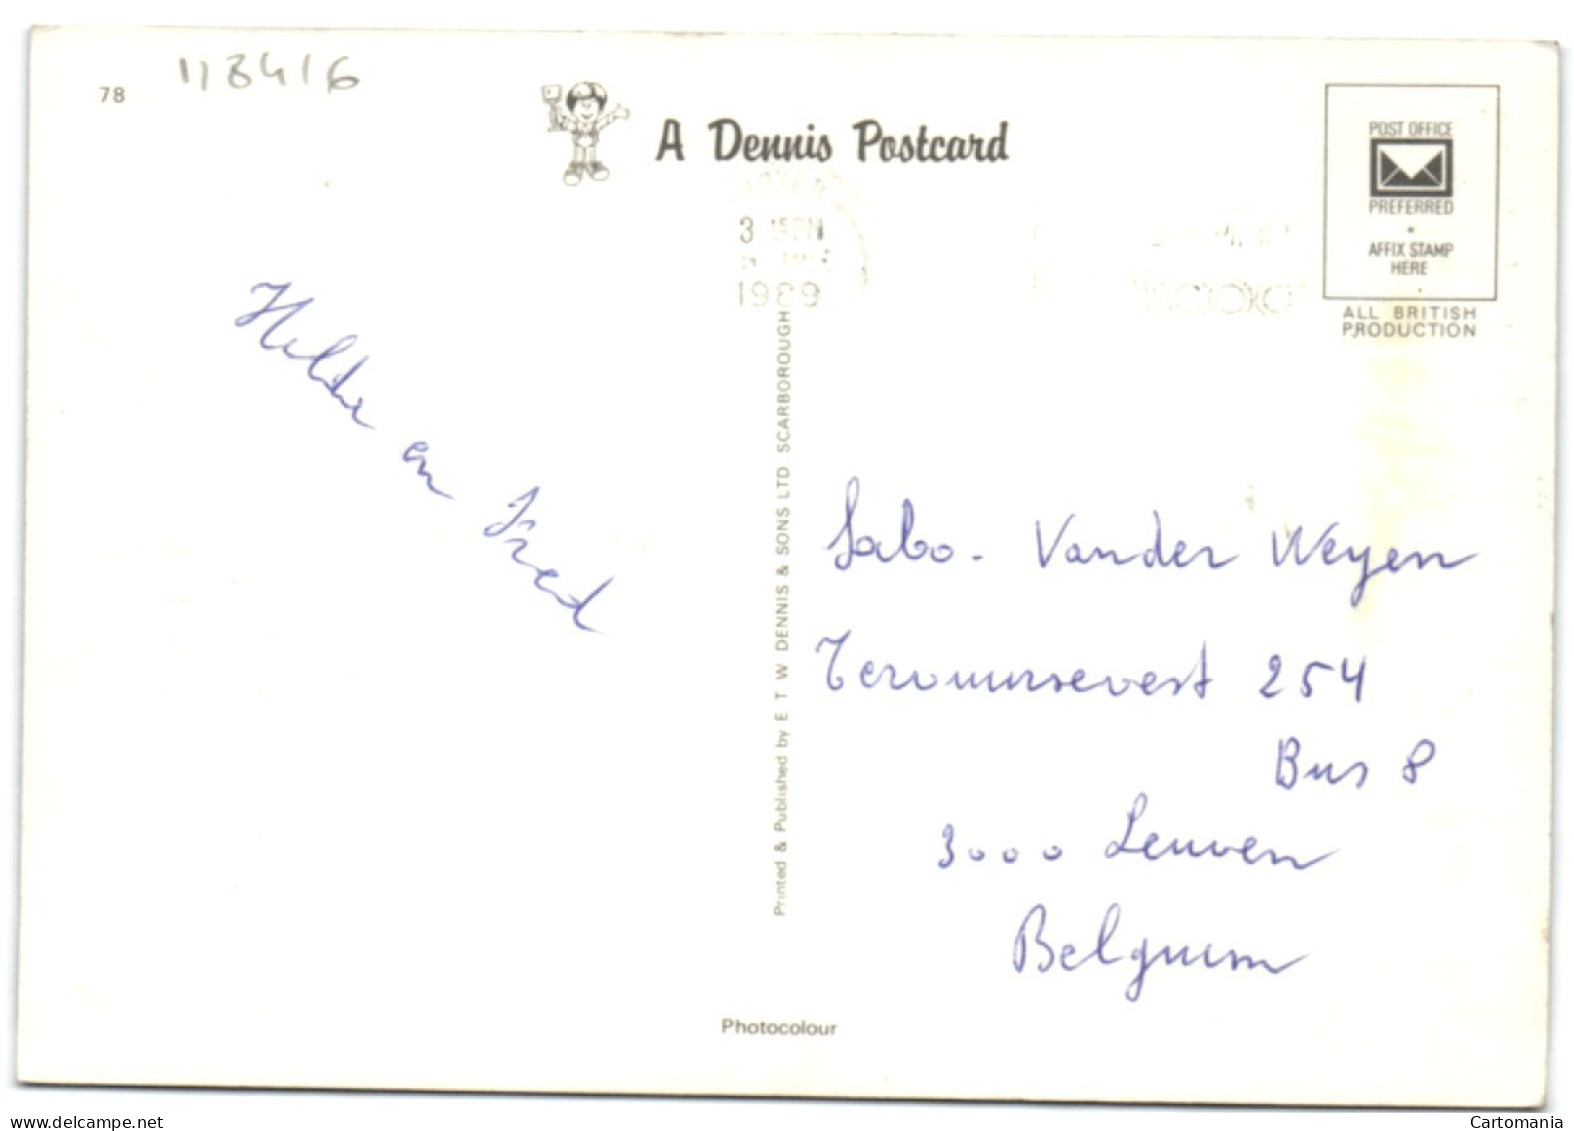 78
118416
A Dennis Postcard
POST OFFICE
PREFERRED
AFFIX STAMP
HERE
ALL BRITISH
PRODUCTION
3 15 PM
1989
Hilde en Fred
Printed & Published by E T W DENNIS & SONS LTD SCARBOROUGH
Sabo - Vander Weyen
Tervuursevest 254
Bus 8
3000 Leuven
Belguim
Photocolour
www.delcampe.net
Cartomania